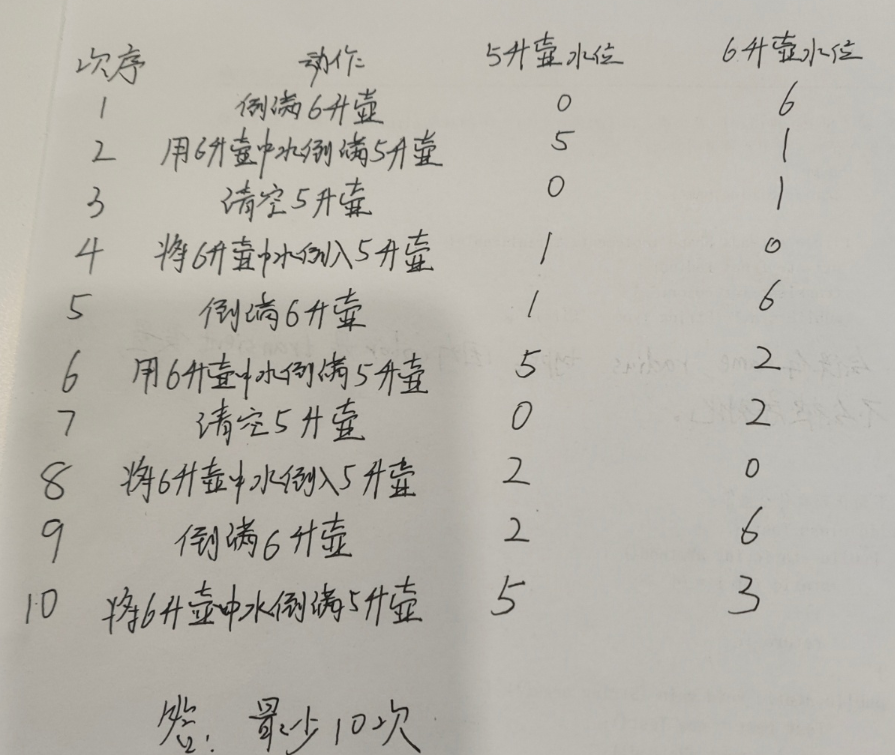 次序 动作 5升壶水位 6升壶水位
1 倒满6升壶 0 6
2 用6升壶中水倒满5升壶 5 1
3 清空5升壶 0 1
4 将6升壶中水倒入5升壶 1 0
5 倒满6升壶 1 6
6 用6升壶中水倒满5升壶 5 2
7 清空5升壶 0 2
8 将6升壶中水倒入5升壶 2 0
9 倒满6升壶 2 6
10 将6升壶中水倒满5升壶 5 3
答: 最少10次